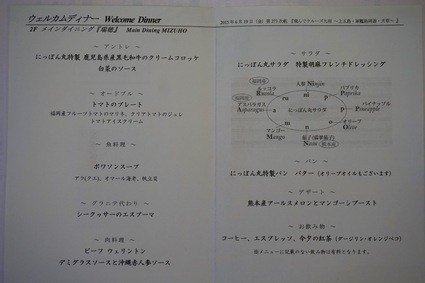 ウェルカムディナー Welcome Dinner
2F メインダイニング『瑞穂』 Main Dining MIZUHO
～ アントレ ～
にっぽん丸特製 鹿児島県産黒毛和牛のクリームコロッケ
白菜のソース
～ オードブル ～
トマトのプレート
福岡産フルーツトマトのマリネ、クリアトマトのジュレ
トマトアイスクリーム
～ 魚料理 ～
ポワソンスープ
アラ(クエ)、オマール海老、帆立貝
～ グラニテ代わり ～
シークヮサーのエスプーマ
～ 肉料理 ～
ビーフ ウェリントン
デミグラスソースと沖縄赤人参ソース
～ サラダ ～
にっぽん丸サラダ 特製胡麻フレンチドレッシング
人参 Ninjin
ルッコラ
Rucola
パプリカ
Paprika
アスパラガス
Asparagus
パイナップル
Pineapple
ru ni p
a にっぽん丸サラダ p
m n o
マンゴー
Mango
オリーブ
Olive
Nasu
～ パン ～
にっぽん丸特製パン バター (オリーブオイルもございます)
～ デザート ～
熊本産アールスメロンとマンゴーシブースト
～ お飲み物 ～
コーヒー、エスプレッソ、今夕の紅茶 (ダージリン・オレンジペコ)
※メニューに記載のない飲み物は有料となります。